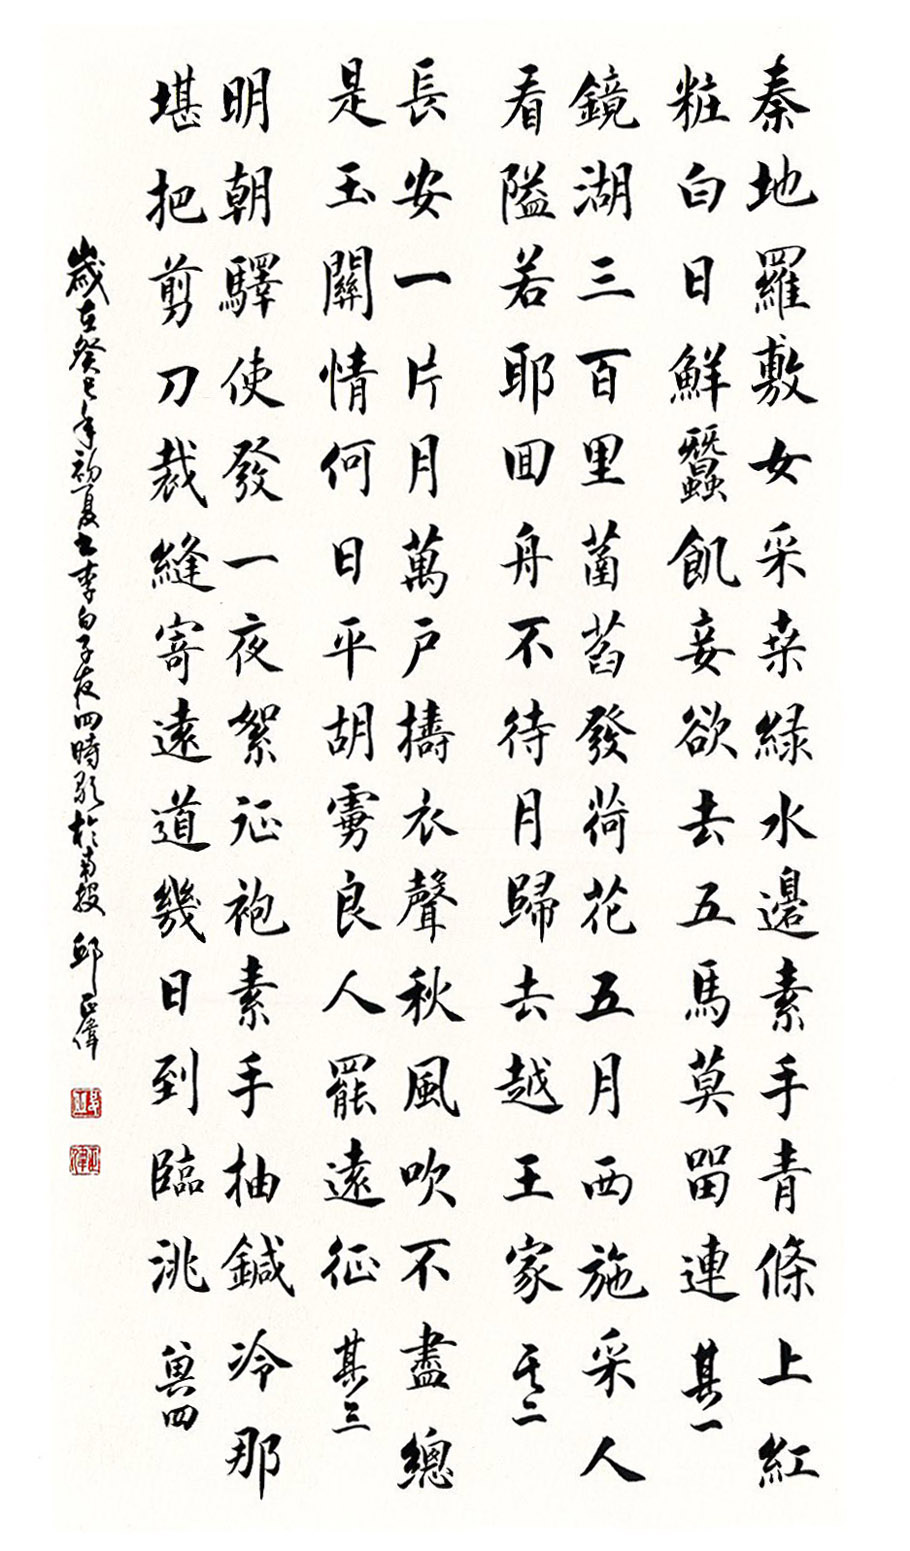 秦地羅敷女采桒緑水邉素手青條上紅
粧白日鮮蠶飢妾欲去五馬莫畱連其一
鏡湖三百里菡萏發荷花五月西施采人
看隘若耶囬舟不待月歸去越王家其二
長安一片月萬戸擣衣聲秋風吹不盡總
是玉關情何日平胡虜良人罷遠征其三
明朝驛使發一夜絮征袍素手抽鍼冷那
堪把剪刀裁縫寄遠道幾日到臨洮其四
歲在癸巳年初夏書李白子夜四時歌於南投 邱正偉